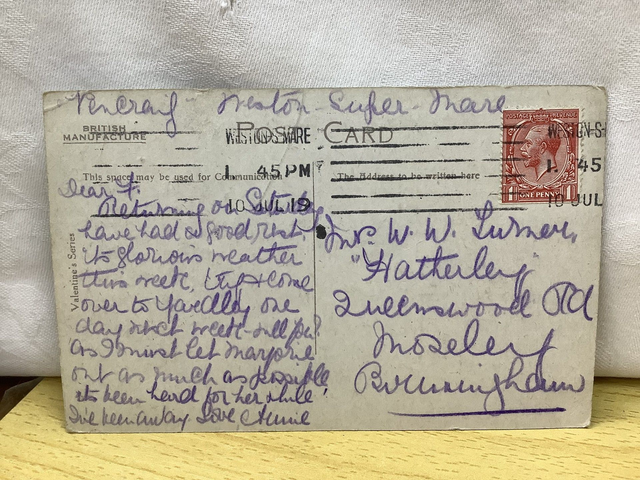 "Vencraig" Weston-Super-Mare
BRITISH
MANUFACTURE
POST CARD
WESTON-S-MARE
1. 45 PM
10 JUL 19
WESTON-S-
1. 45
10 JUL
This space may be used for Communication
The Address to be written here
POSTAGE REVENUE
ONE PENNY
Valentine's Series
Dear F.
Returning on Saturday
have had a good rest.
its glorious weather
this week, try & come
over to Yardley one
day next week - will you?
as I must let Marjorie
out as much as possible
its been hard for her while
I've been away. Love Annie
Mrs W. W. Turner,
"Hatherley"
Queenswood Rd
Moseley
Birmingham